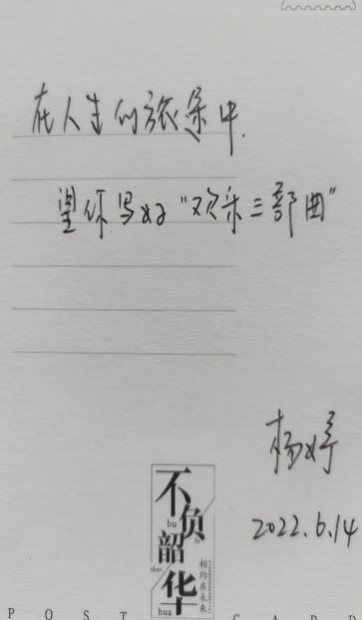 在人生的旅途中.
望你写好“欢乐三部曲”
杨婷
2022.6.14
不负
bu
韶
华
hua
相约在未来
POST CARD